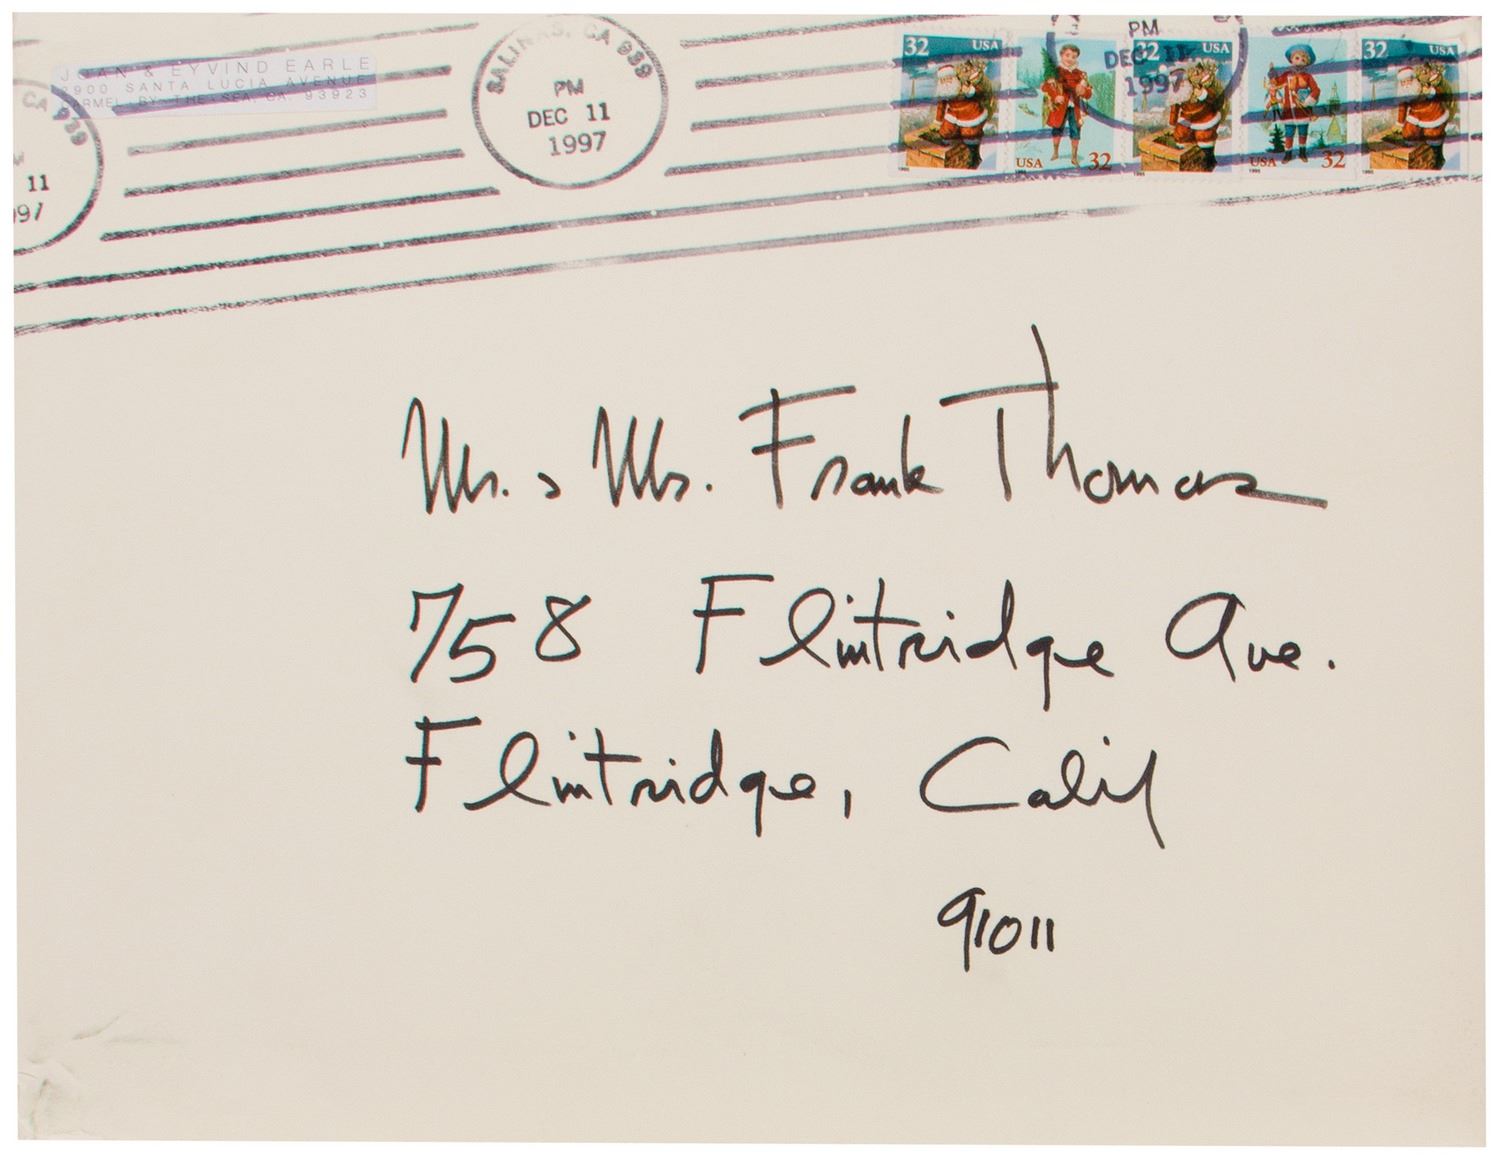 JOAN & EYVIND EARLE
2900 SANTA LUCIA AVENUE
CARMEL-BY-THE-SEA, CA. 93923
CA 939
11
997
SALINAS, CA 939
PM
DEC 11
1997
PM
DEC 11
1997
32 USA
USA 32
32 USA
USA 32
32 USA
Mr. & Mrs. Frank Thomas
758 Flintridge Ave.
Flintridge, Calif
91011